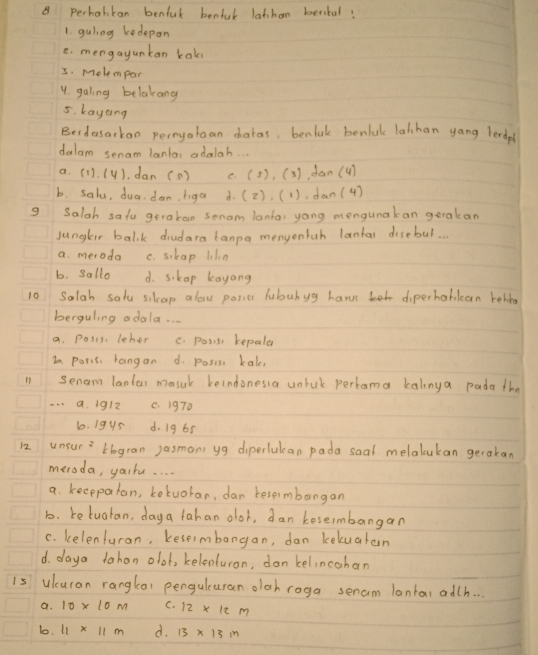 8 Perhatikan bentuk bentuk latihan berikut !
1. guling kedepan
2. mengayunkan kaki
3. Melempar
4. guling belakang
5. kayang
Berdasarkan pernyataan diatas, bentuk bentuk latihan yang terdpt
dalam senam lantai adalah...
a. (1), (4), dan (5) c. (5), (3), dan (4)
b. satu, dua, dan, tiga d. (2), (1), dan (4)
9 Salah satu gerakan senam lantai yang mengunakan gerakan
jungkir balik diudara tanpa menyentuh lantai disebut...
a. meroda c. sikap lilin
b. Salto d. sikap kayang
10 Salah satu sikap atau posisi tubuh yg harus diperhatikan ketika
berguling adala ...
a. Posisi leher c. Posisi kepala
b. Posisi tangan d. Posisi kaki
11 Senam lantai masuk keindonesia untuk pertama kalinya pada thn
... a. 1912 c. 1970
b. 1945 d. 1965
12 unsur² kbgran jasmani yg diperlukan pada saat melakukan gerakan
meroda, yaitu ....
a. kecepatan, kekuatan, dan keseimbangan
b. kekuatan, daya tahan otot, dan keseimbangan
c. kelenturan, keseimbangan, dan kekuatan
d. daya tahan otot, kelenturan, dan kelincahan
13 Ukuran rangkai pengukuran olah raga senam lantai adlh...
a. 10 x 10 m c. 12 x 12 m
b. 11 x 11 m d. 13 x 13 m